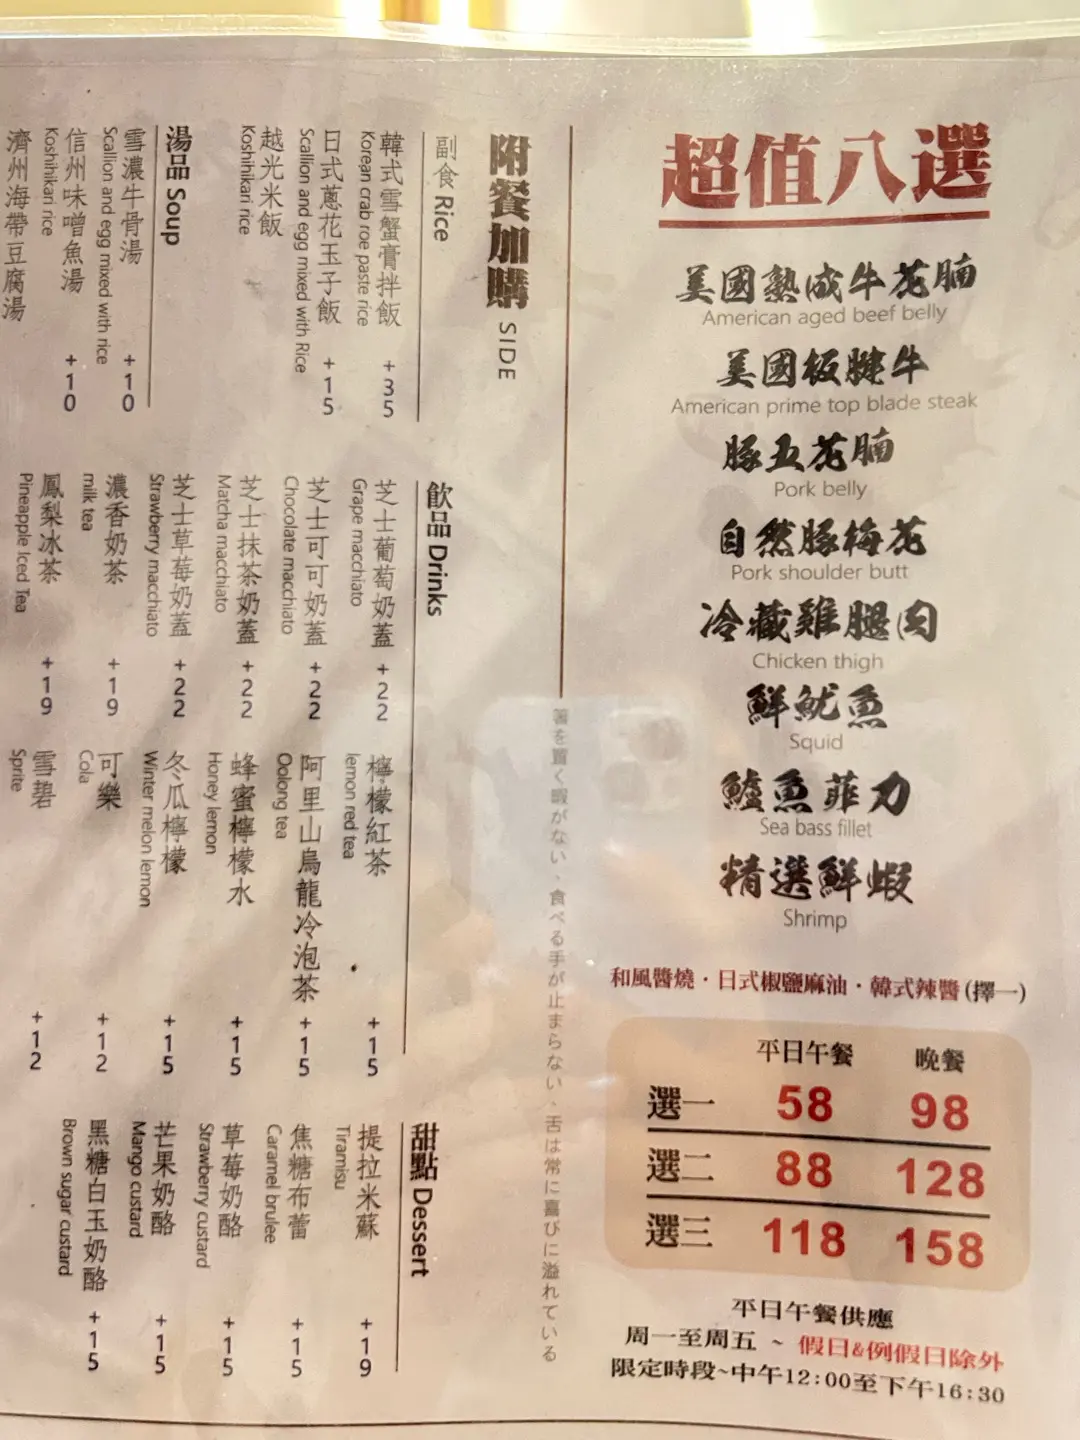 超值八選
美國熟成牛花腩
American aged beef belly
美國板腱牛
American prime top blade steak
豚五花腩
Pork belly
自然豚梅花
Pork shoulder butt
冷藏雞腿肉
Chicken thigh
鮮魷魚
Squid
鱸魚菲力
Sea bass fillet
精選鮮蝦
Shrimp
和風醬燒·日式椒鹽麻油·韓式辣醬(擇一)
平日午餐 晚餐
選一 58 98
選二 88 128
選三 118 158
平日午餐供應
周一至周五 ~ 假日&例假日除外
限定時段~中午12:00至下午16:30
箸を置く暇がない、食べる手が止まらない、舌は常に喜びに溢れている
附餐加購 SIDE
副食 Rice
韓式雪蟹膏拌飯 +35
Korean crab roe paste rice
日式蔥花玉子飯 +15
Scallion and egg mixed with Rice
越光米飯
Koshihikari rice
湯品 Soup
雪濃牛骨湯 +10
Scallion and egg mixed with rice
信州味噌魚湯 +10
Koshihikari rice
濟州海帶豆腐湯
飲品 Drinks
芝士葡萄奶蓋 +22
Grape macchiato
芝士可可奶蓋 +22
Chocolate macchiato
芝士抹茶奶蓋 +22
Matcha macchiato
芝士草莓奶蓋 +22
Strawberry macchiato
濃香奶茶 +19
milk tea
鳳梨冰茶 +19
Pineapple Iced Tea
檸檬紅茶 +15
lemon red tea
阿里山烏龍冷泡茶 +15
Oolong tea
蜂蜜檸檬水 +15
Honey lemon
冬瓜檸檬 +15
Winter melon lemon
可樂 +12
Cola
雪碧 +12
Sprite
甜點 Dessert
提拉米蘇 +19
Tiramisu
焦糖布蕾 +15
Caramel brulee
草莓奶酪 +15
Strawberry custard
芒果奶酪 +15
Mango custard
黑糖白玉奶酪 +15
Brown sugar custard